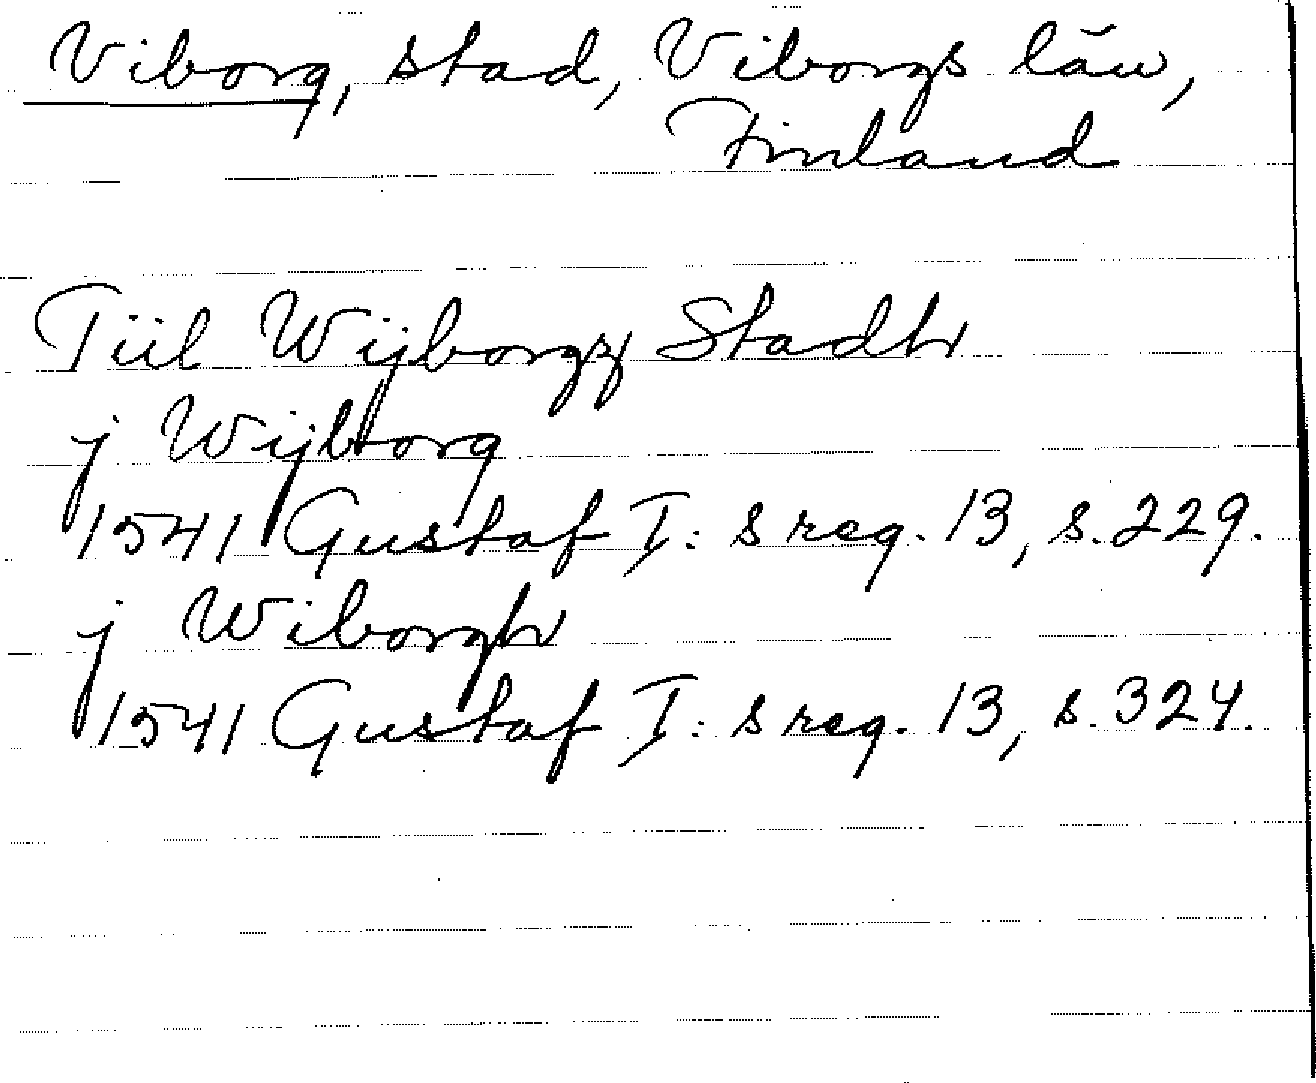 Viborg, stad, Viborgs län,
Finland
Tiil Wijborgz Stadh
j Wijborg
1541 Gustaf I:s reg. 13, s. 229.
j Wiborgh
1541 Gustaf I:s reg. 13, s. 324.